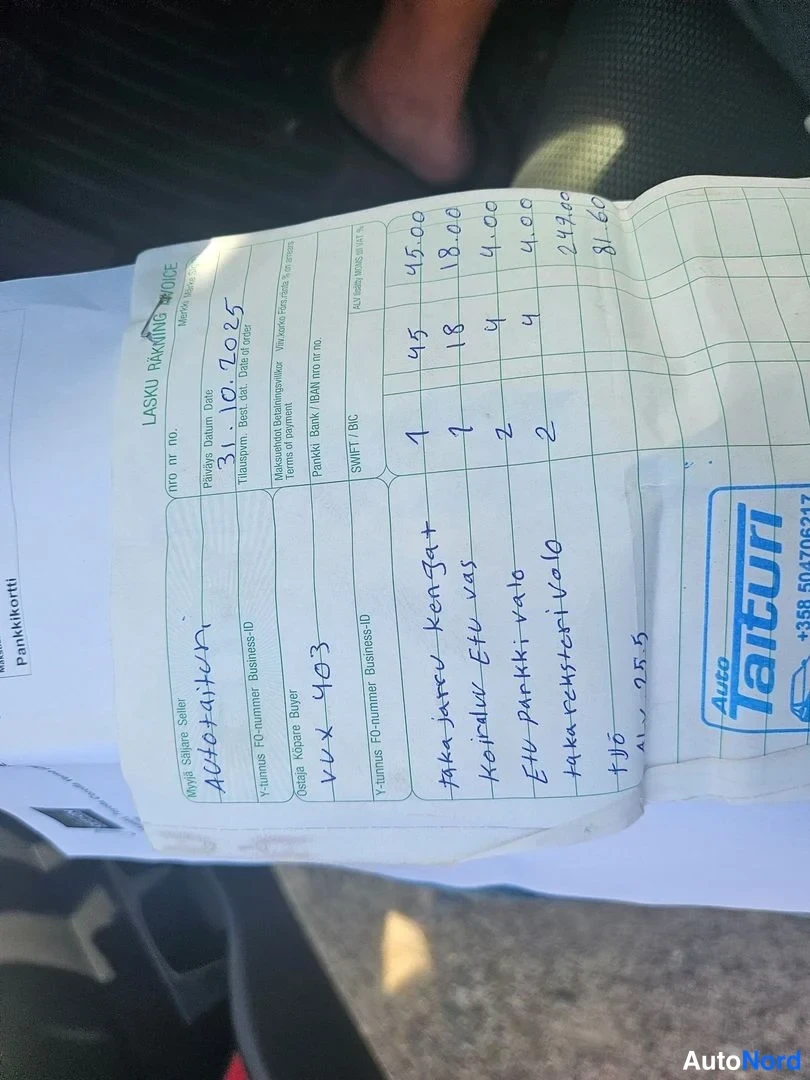 LASKU RÄKNING INVOICE
Myyjä Säljare Seller
Autotaituri
Y-tunnus FO-nummer Business-ID
Ostaja Köpare Buyer
VVX 403
Y-tunnus FO-nummer Business-ID
nro nr no.
Päiväys Datum Date
31.10.2025
Tilauspvm. Best. dat. Date of order
Merkki Märke
Maksuehdot Betalningsvillkor
Terms of payment
Viiv.korko Förs.ränta % on arrears
Pankki Bank / IBAN nro nr no.
SWIFT / BIC
ALV lisätty MOMS till VAT %
taka jarru kengat 1 45 45.00
Koiraluu Etu vas 1 18 18.00
Etu parkki valo 2 4 4.00
takarekisteri valo 2 4 4.00
työ 247.00
ALV 25.5 81.60
Auto
Taituri
+358 504706217
Pankkikortti
AutoNord